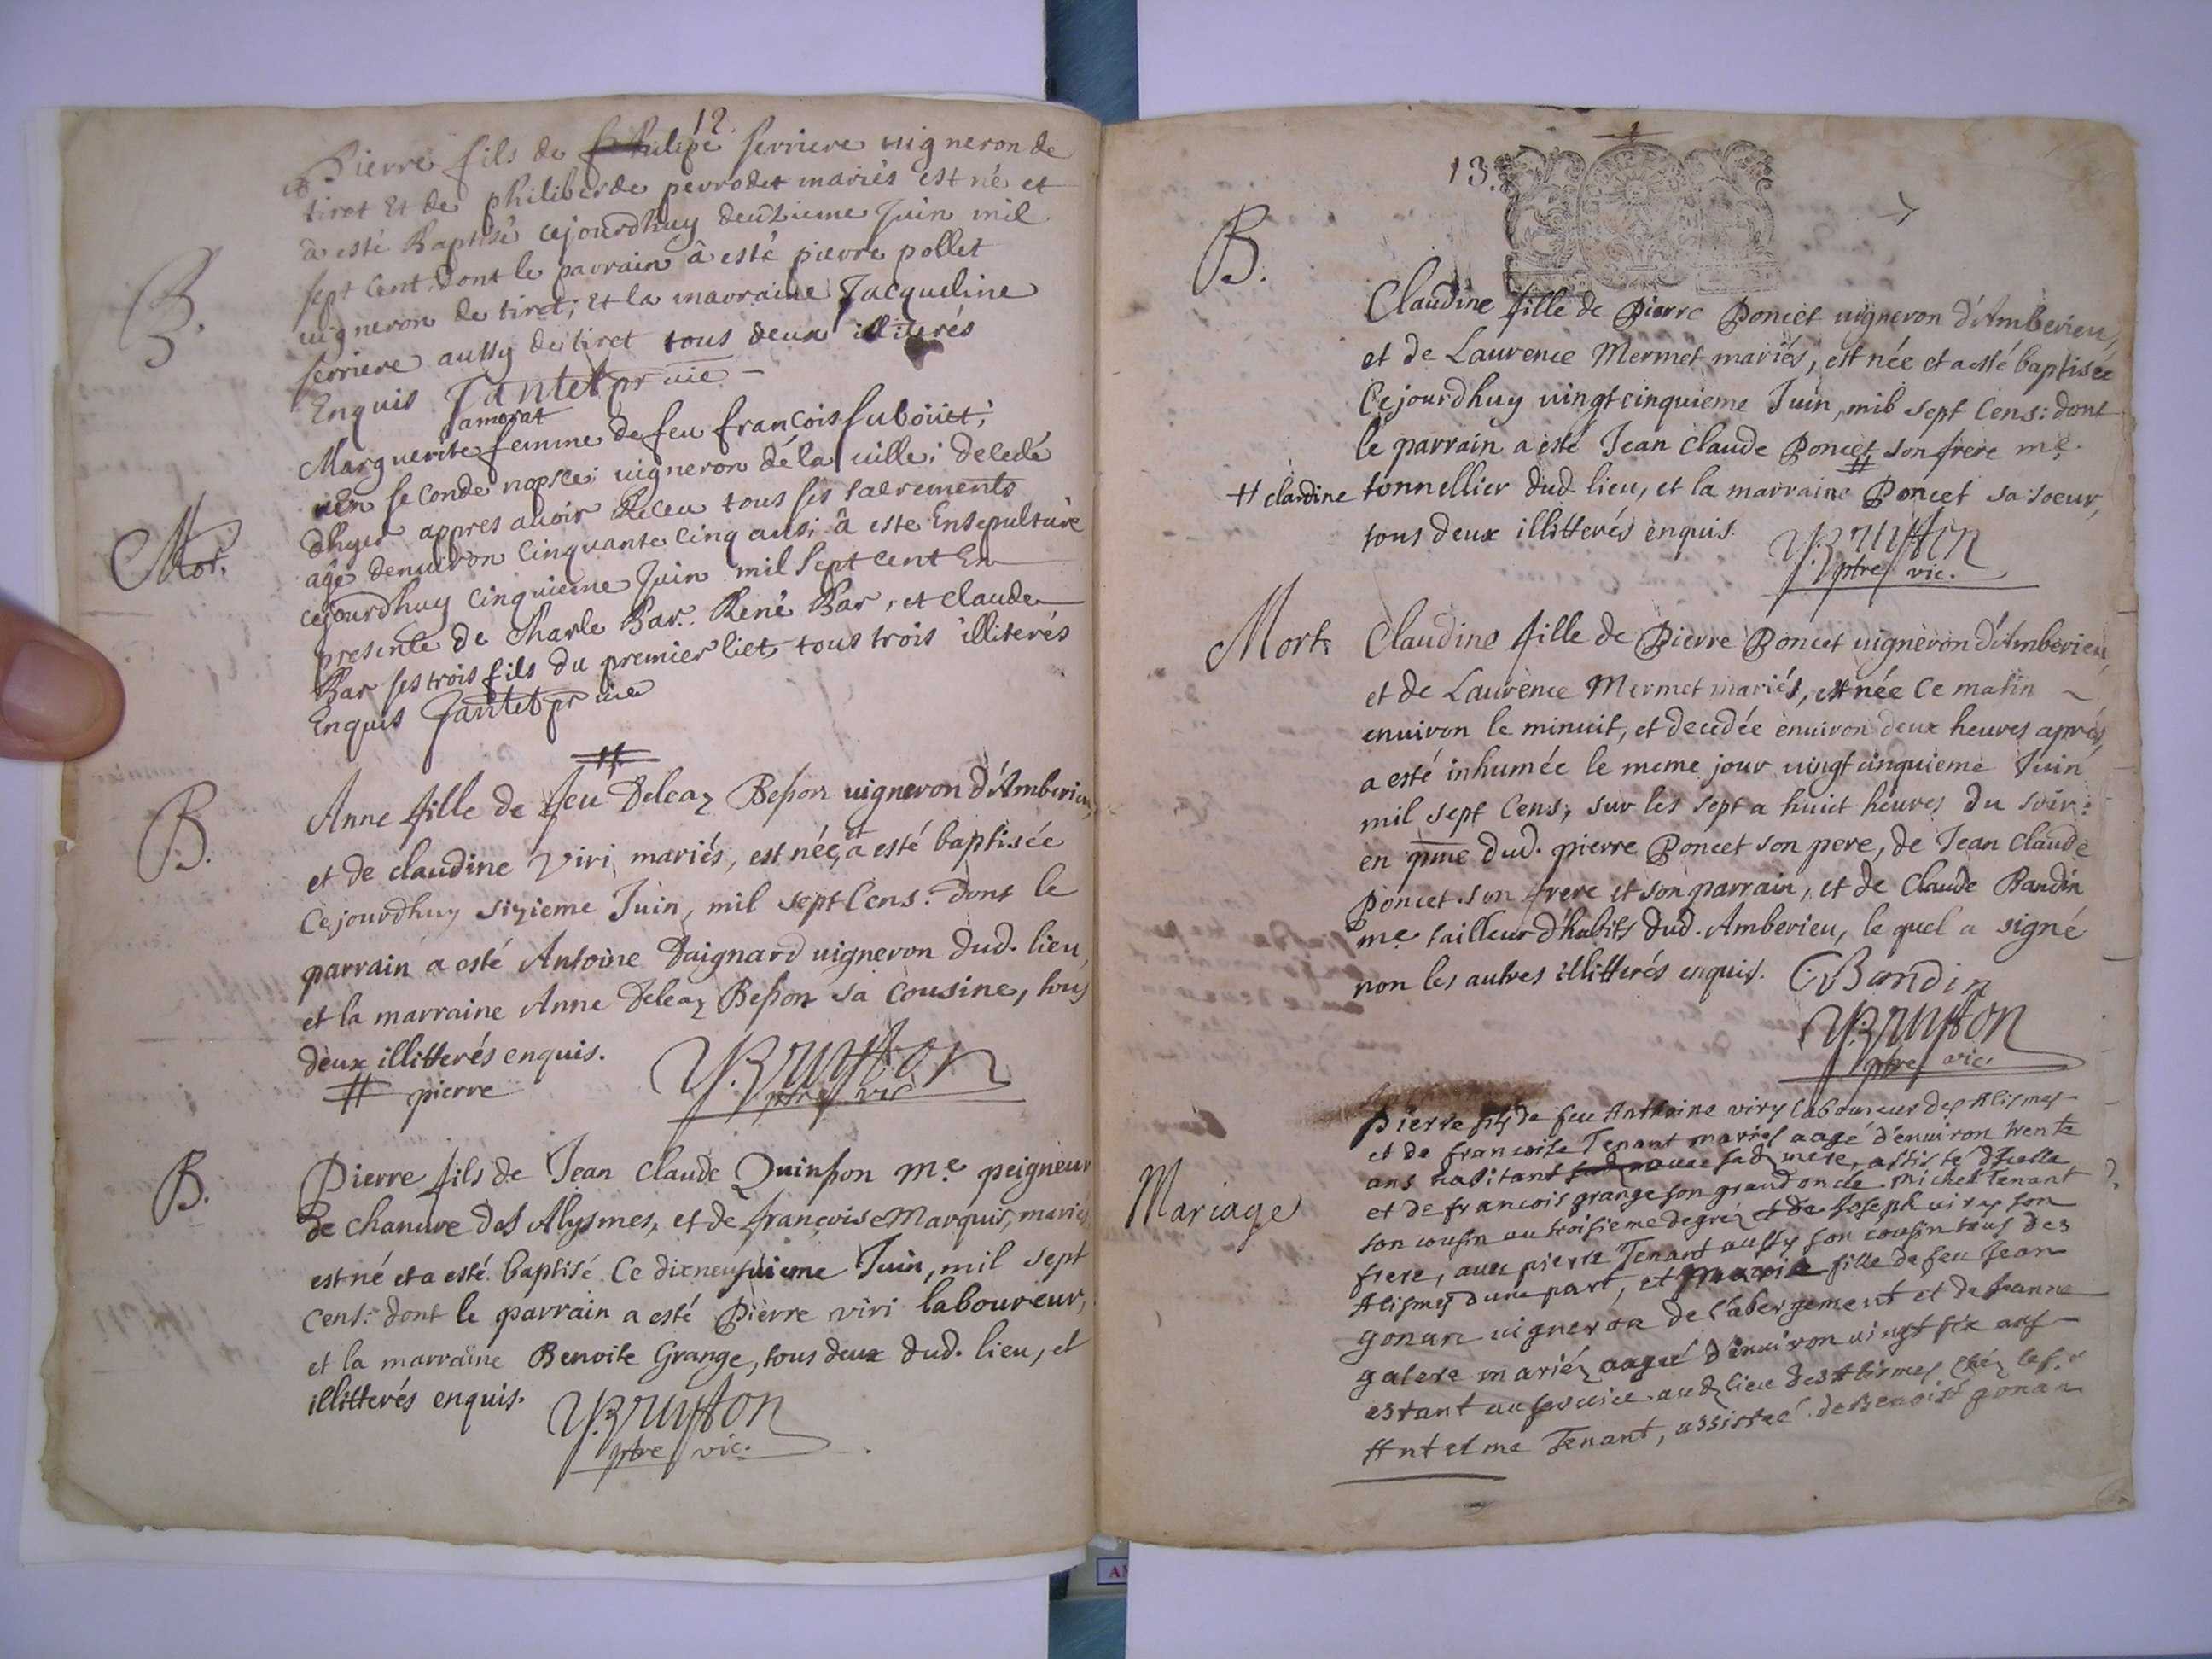 12.
Pierre fils de philipe serriere vigneron de
tiret Et de philiberde perrodet mariés est né et
B.
à esté Baptisé cejourdhuy deuxieme Juin mil
sept Cent. Dont le parrain â esté pierre pollet
vigneron de tiret; Et la marraine Jacqueline
serriere aussy de tiret tous deux illiterés
Enquis Jantet pr vic
Mor.
Jamorat
Marguerite femme de feu francois subouit;
en seconde nopsce; vigneron de la ville; decedé
dhyer appres avoir Receu tous ses sacrements
agé denviron Cinquante Cinq ans; â este Ensepulture
cejourdhuy Cinquieme Juin mil Sept Cent En
presente de Charle Bar. René Bar, et Claude
Bar ses trois fils du premier liet tous trois illiterés
Enquis Jantet pr vic
B.
#
Anne fille de feu Deleaz Besson vigneron d'Amberieu,
et de claudine Viri mariés, est née, et a esté baptisée
Cejourdhuy sizieme Juin, mil sept Cens. Dont le
parrain a esté Antoine Daignard vigneron dud. lieu,
et la marraine Anne Deleaz Besson sa Cousine, tous
deux illitterés enquis.
# pierre
Bruyston
ptre vic.
B.
Pierre fils de Jean Claude Quinson Me. peigneur
de chanvre des Alysmes, et de françoise Marquis, mariés
est né et a esté baptisé Ce dixneufvieme Juin, mil sept
Cens: dont le parrain a esté Pierre viri laboureur,
et la marraine Benoite Grange, tous deux dud. lieu, et
illitterés enquis.
Bruyston
ptre vic.
13.
B.
Claudine fille de Pierre Poncet vigneron d'Amberieu,
et de Laurence Mermet mariés, est née et a esté baptisée
Cejourdhuy vingt cinquieme Juin, mil sept Cens: dont
le parrain a esté Jean Claude Poncet son frere me.
# claudine
tonnellier dud. lieu, et la marraine # Poncet sa soeur,
tous deux illitterés enquis.
Bruyston
ptre vic.
Mort.
Claudine fille de Pierre Poncet vigneron d'Amberieu,
et de Laurence Mermet mariés, est née Ce matin
environ le minuit, et decedée environ deux heures aprés,
a esté inhumée le meme jour vingt cinquieme Juin
mil sept Cens, sur les sept a huict heures du soir:
en pnce dud. pierre Poncet son pere, de Jean Claude
Poncet son frere et son parrain, et de Claude Bandin
me. tailleur d'habits dud. Amberieu, le quel a signé
non les autres illitterés enquis. C. Bandin
Bruyston
ptre vic.
Mariage
Pierre fils de feu Anthoine viry laboureur des Alismes
et de francoise Tenant mariés aagé d'environ trente
ans habitant avec sad mere, assisté d'icelle
et de francois grange son grand oncle michel tenant
son cousin au troisieme degréz et de Joseph viry son
frere, avec pierre Tenant aussy son cousin tous des
Alismes d'une part, et fille de feu Jean
gonan vigneron de l'abergement et de Jeanne
galere mariéz aageé d'environ vingt six ans
estant au service aud lieu des Alismes chéz le sr
Antelme Tenant, assisteé de Benoist gonan